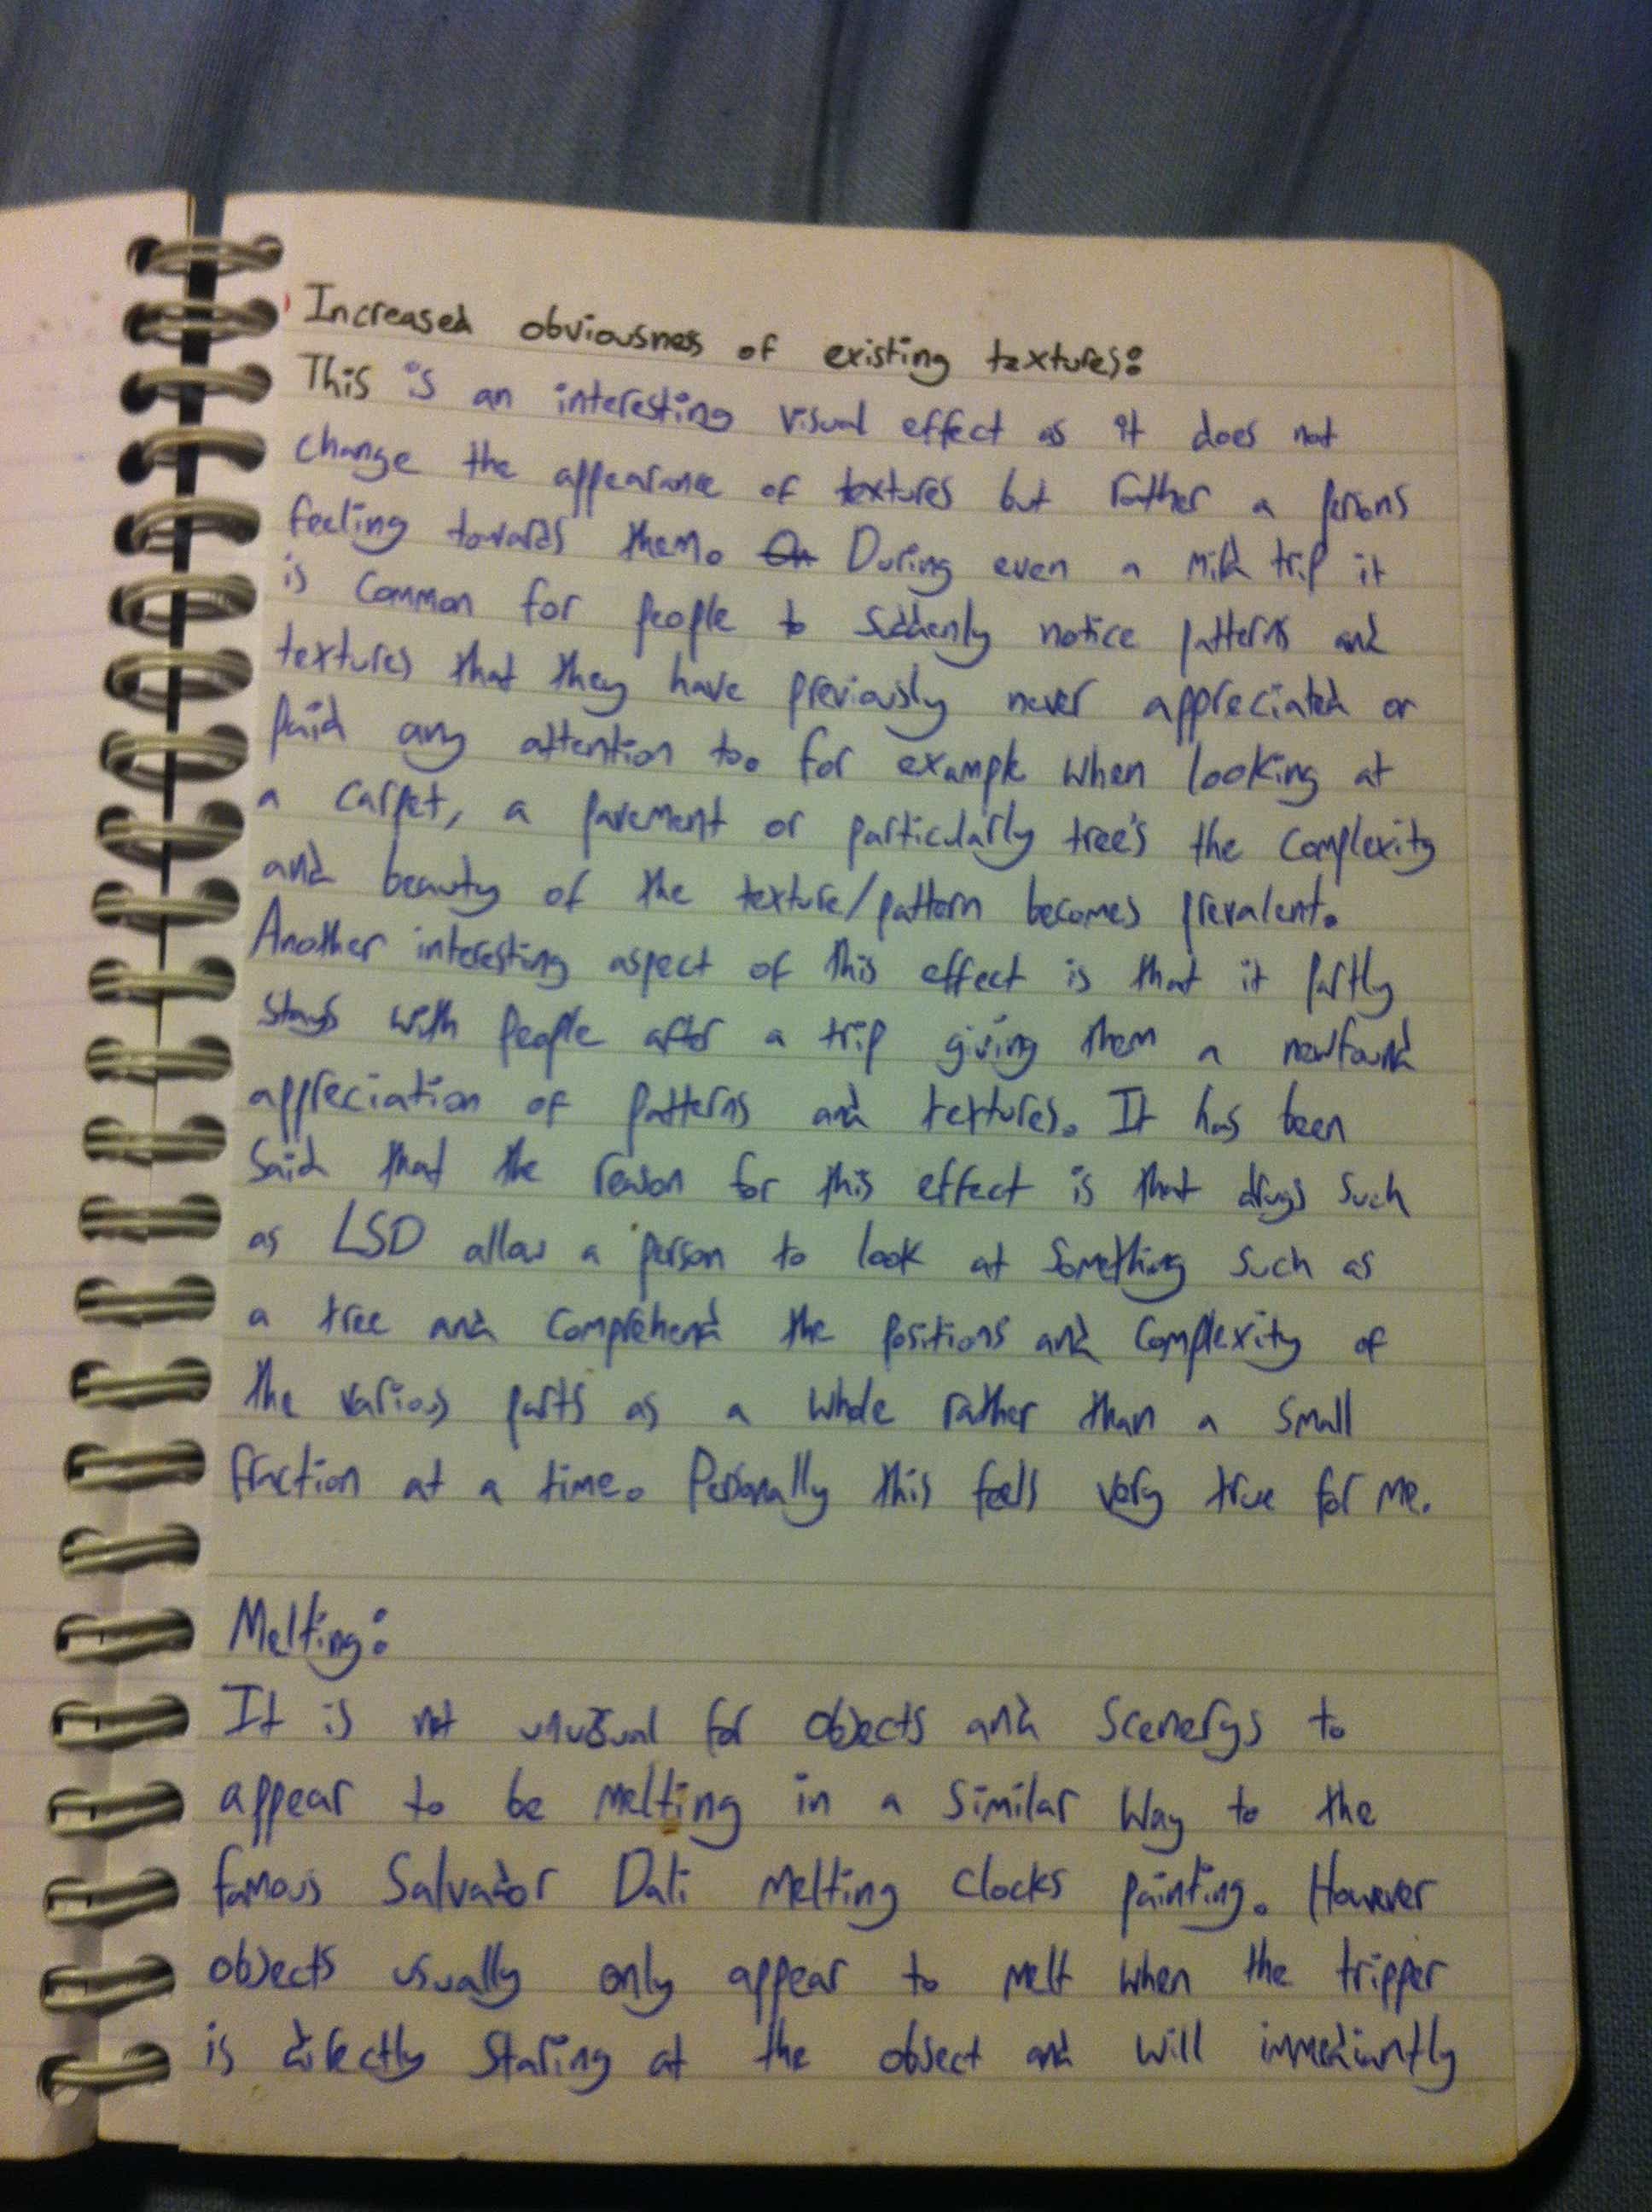 Increased obviousness of existing textures:
This is an interesting visual effect as it does not
change the appearance of textures but rather a persons
feeling towards them. On During even a mild trip it
is common for people to suddenly notice patterns and
textures that they have previously never appreciated or
paid any attention too. For example when looking at
a carpet, a pavement or particularly tree's the complexity
and beauty of the texture/pattern becomes prevalent.
Another interesting aspect of this effect is that it partly
stays with people after a trip giving them a newfound
appreciation of patterns and textures. It has been
said that the reason for this effect is that drugs such
as LSD allow a person to look at something such as
a tree and comprehend the positions and complexity of
the various parts as a whole rather than a small
fraction at a time. Personally this feels very true for me.
Melting:
It is not unusual for objects and scenerys to
appear to be melting in a similar way to the
famous Salvador Dali melting clocks painting. However
objects usually only appear to melt when the tripper
is directly staring at the object and will immediantly